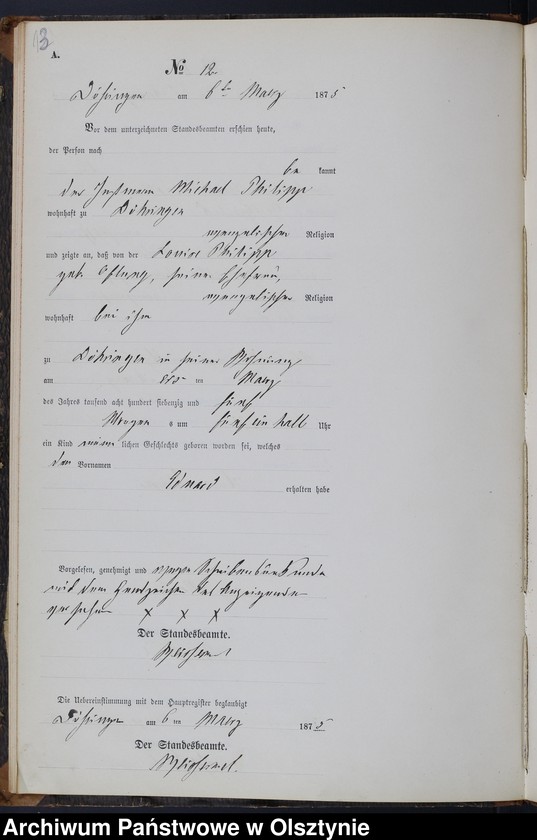 13
A.
No 12.
Döhringen am 6ten März 1875
Vor dem unterzeichneten Standesbeamten erschien heute,
der Person nach
be kannt
der Instmann Michael Philipp
wohnhaft zu Döhringen
evangelischer Religion
und zeigte an, daß von der Louise Philipp
geb. seiner Ehefrau,
evangelischer Religion
wohnhaft bei ihm
zu Döhringen in seiner Wohnung
am ten März
des Jahres tausend acht hundert siebenzig und fünf
Morgens um fünf ein halb Uhr
ein Kind männlichen Geschlechts geboren worden sei, welches
den Vornamen
Eduard erhalten habe
Vorgelesen, genehmigt und wegen Schreibensunkunde
mit dem Handzeichen des Anzeigenden
versehen x x x
Der Standesbeamte.
Die Uebereinstimmung mit dem Hauptregister beglaubigt
Döhringen am 6 ten März 1875
Der Standesbeamte.
Archiwum Państwowe w Olsztynie